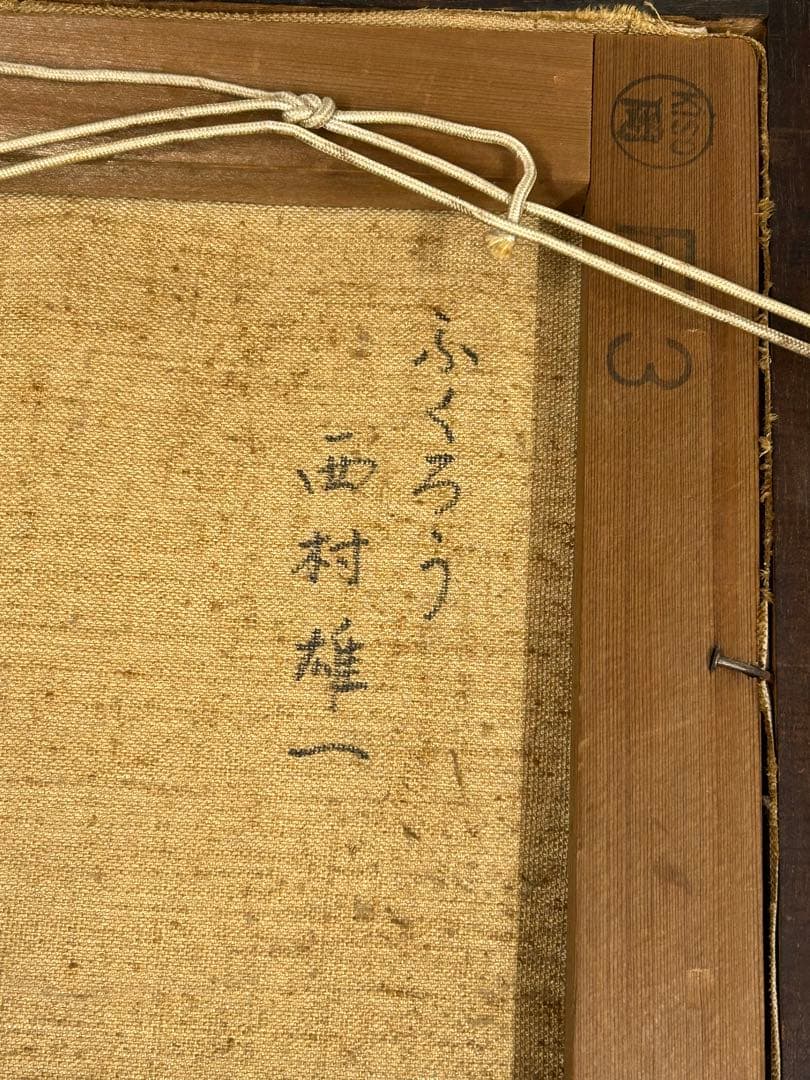 ふくろう
西村雄一
KISO
F3